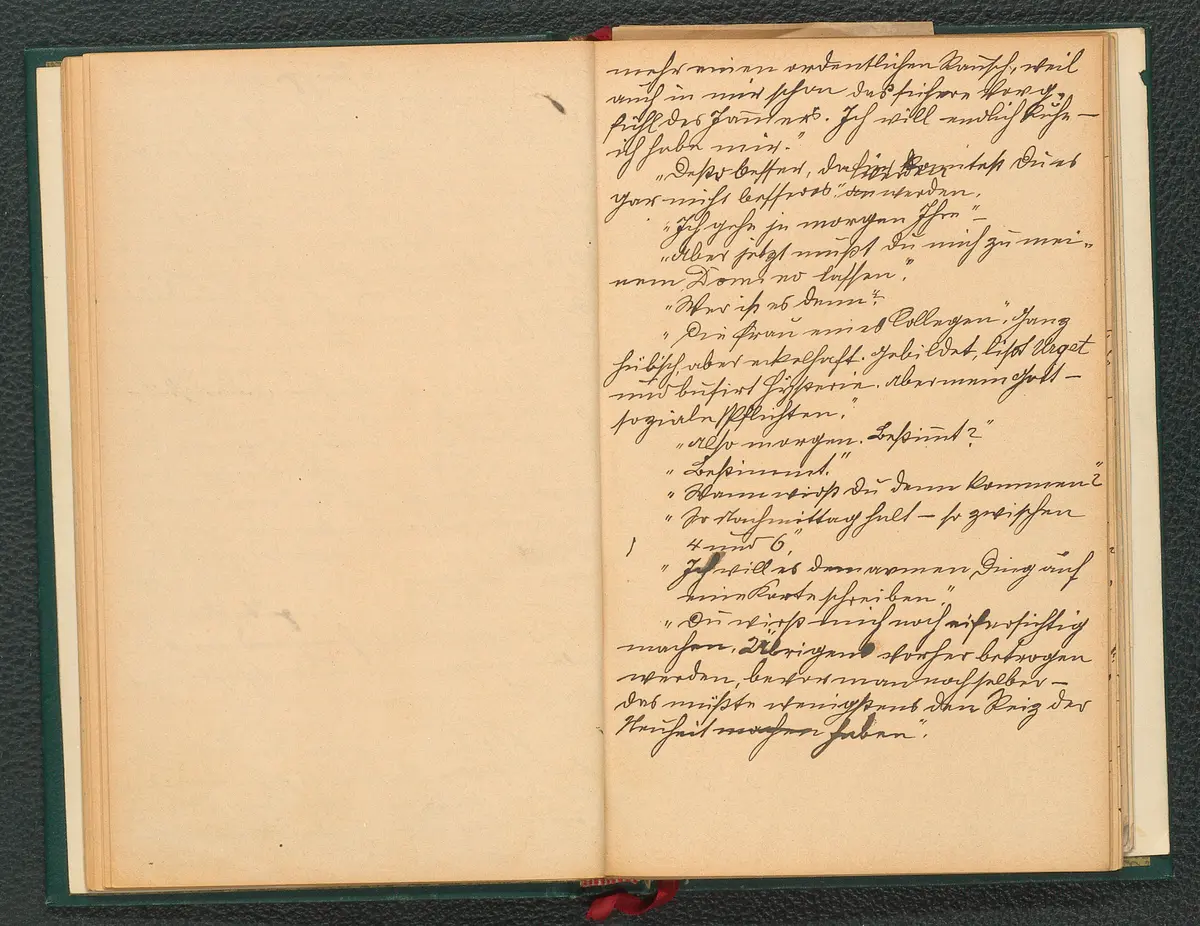 mehr einen ordentlichen Rausch, weil
auch in mir schon das sichere Vorge-
fühl des Jammers. Ich will endlich Ruhe –
ich habe mir."
"Desto besser, Du es
gar nicht besseres" anwerden.
"Ich gehe ja morgen Ihre" –
"Aber jetzt mußt Du mich zu mei-
nem Domino lassen".
"Wer ist es denn"?
"Die Frau eines Collegen", Ganz
hübsch, aber eckelhaft. Gebildet, lißt
und Hysterie. Aber mein Gott –
soziale Pflichten".
"Also morgen. Bestimmt?"
"Bestimmt."
"Wann wirst Du denn kommen?"
"So Nachmittag halt – so zwischen
4 und 6."
"Ich will es dem armen Ding auf
eine Karte schreiben".
"Du wirst mich noch eifersichtig
machen. Übrigens vorher betrogen
werden, bevor man noch selber –
das müßte wenigstens den Reiz der
Neuheit machen haben".